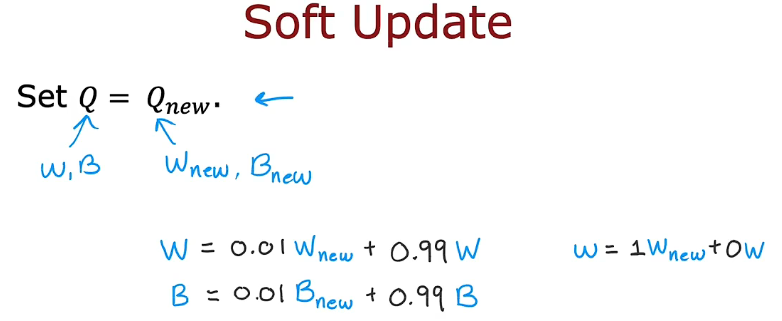 Soft Update
Set Q = Q_new. ←
W, B W_new, B_new
W = 0.01 W_new + 0.99 W w = 1W_new + 0W
B = 0.01 B_new + 0.99 B